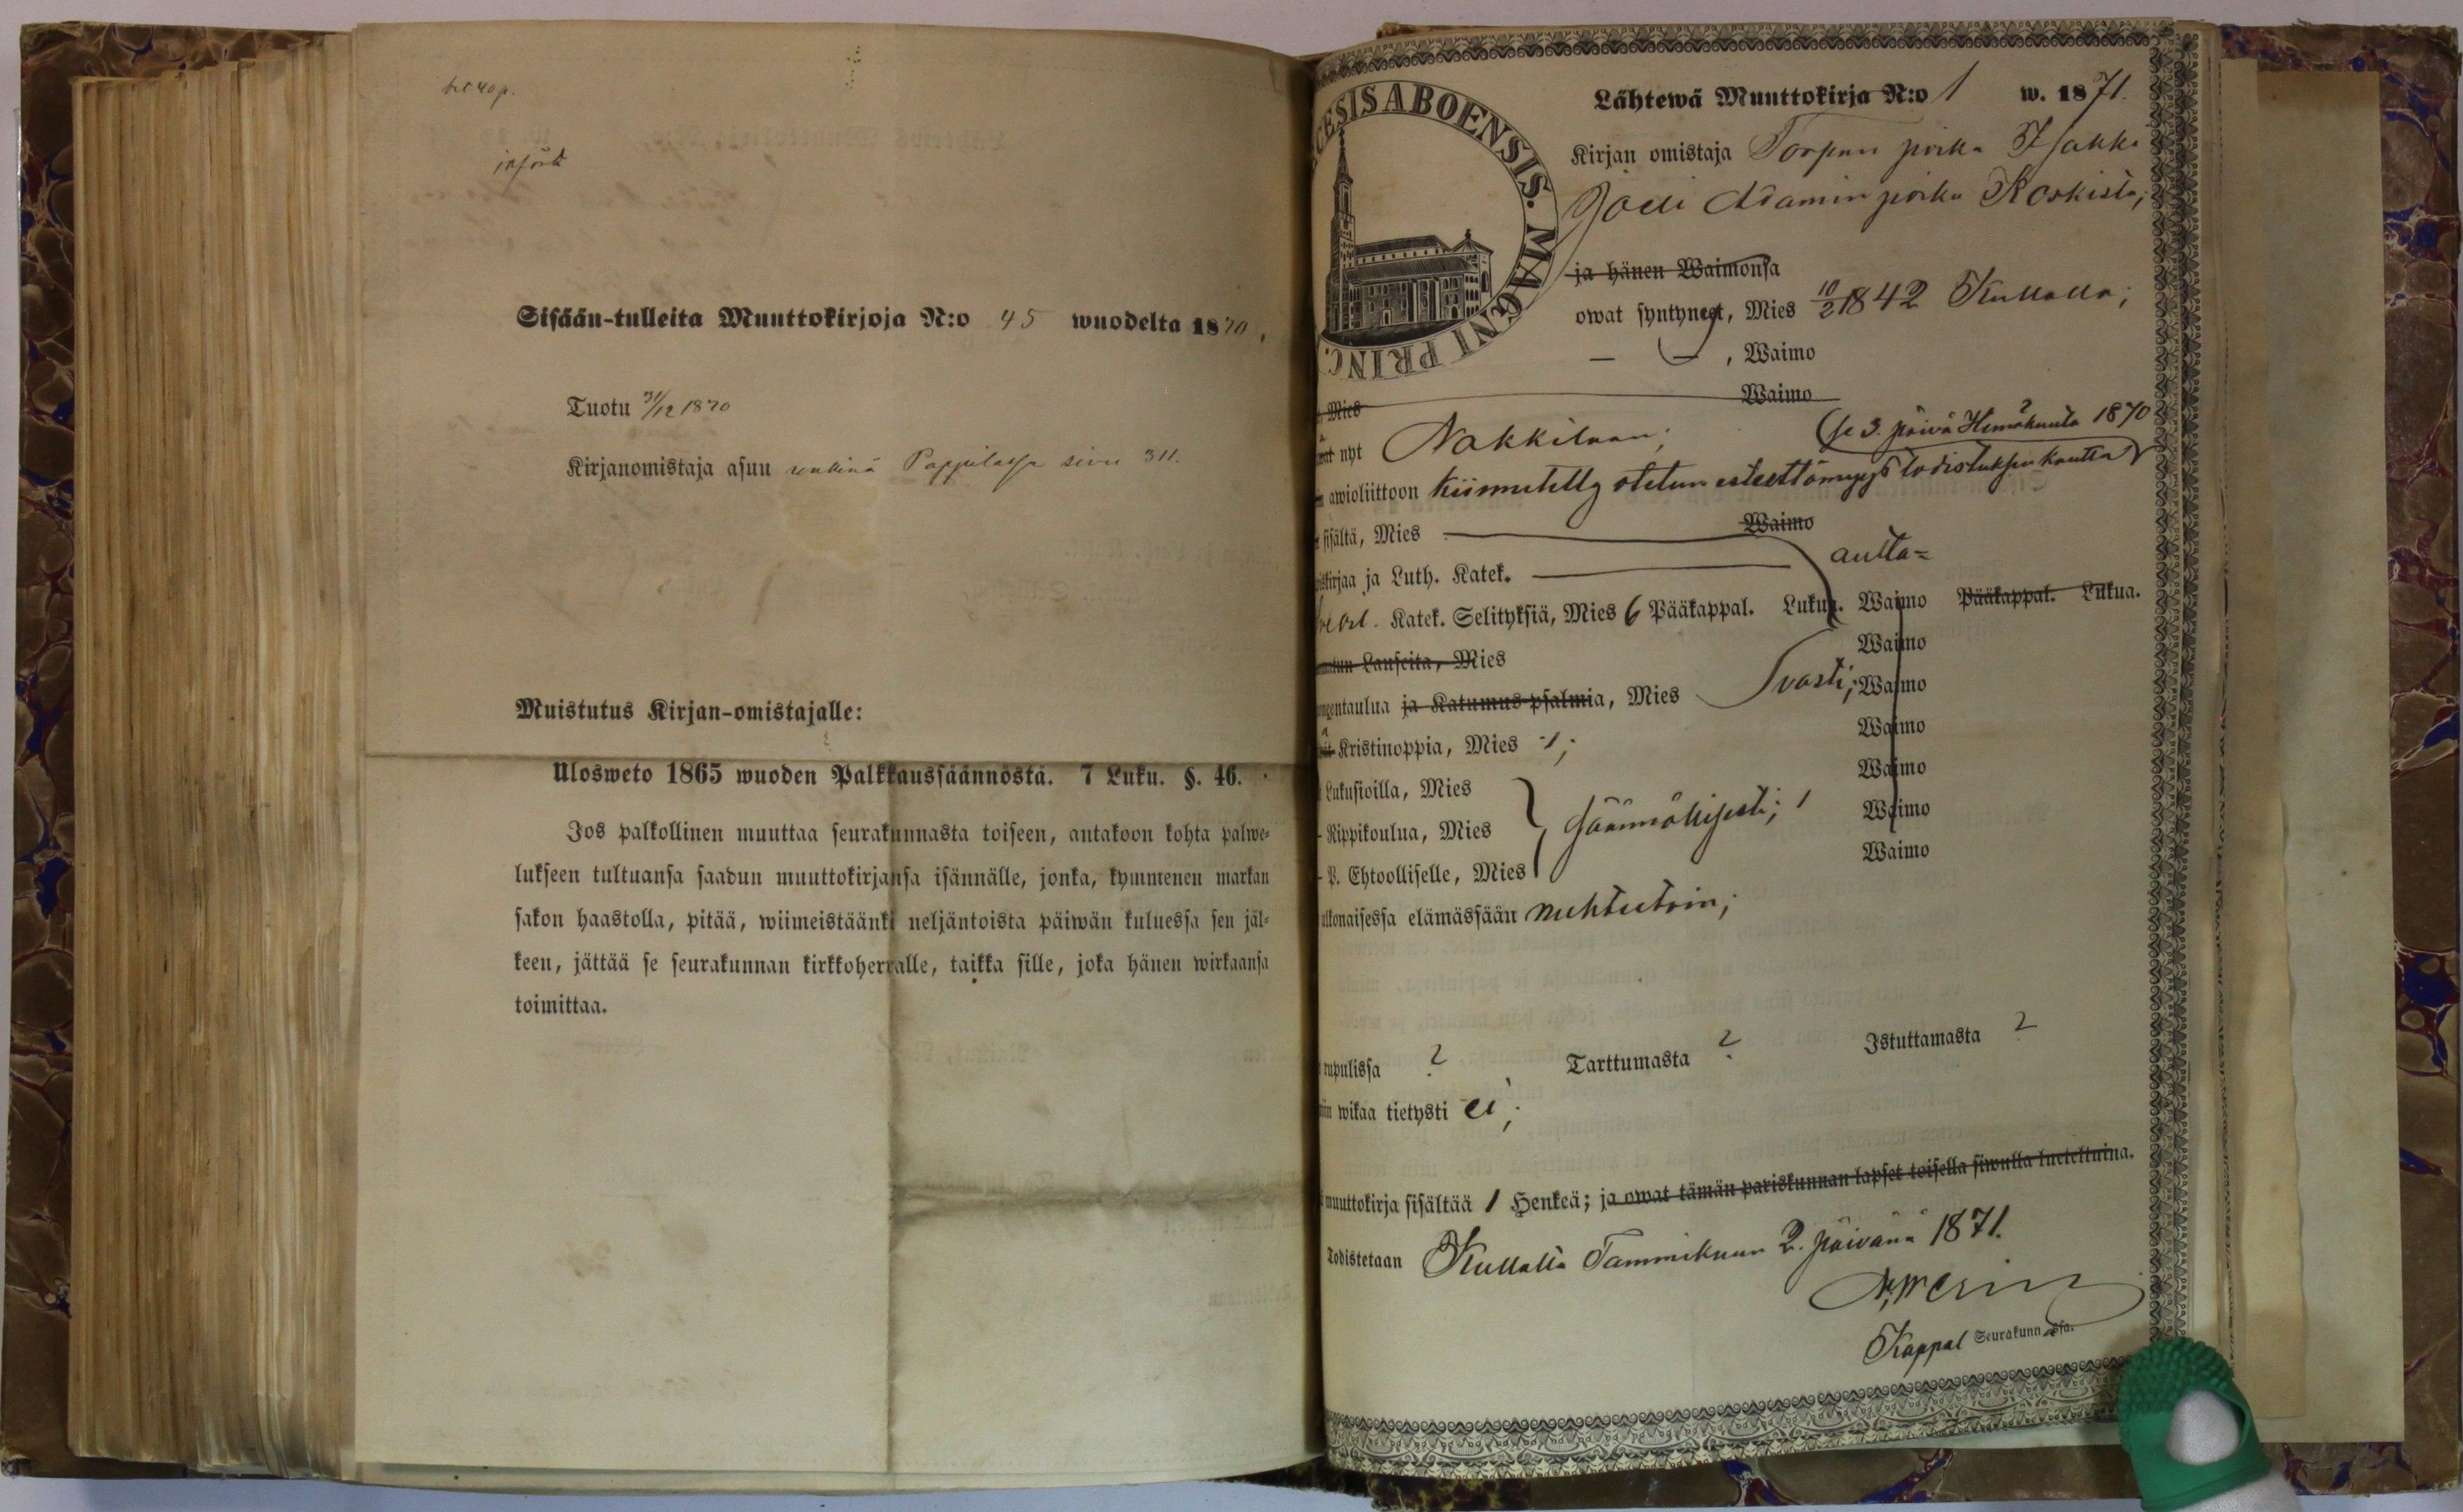 införd
Sisään-tulleita Muuttokirjoja N:o 45 wuodelta 1870,
Tuotu 31/12 1870
Kirjanomistaja asuu renkinä Pappilassa sivu 311.
Muistutus Kirjan-omistajalle:
Ulosweto 1865 wuoden Palkkaussäännöstä. 7 Luku. §. 46.
Jos palkollinen muuttaa seurakunnasta toiseen, antakoon kohta palwe-
lukseen tultuansa saadun muuttokirjansa isännälle, jonka, kymmenen markan
sakon haastolla, pitää, wiimeistäänki neljäntoista päiwän kuluessa sen jäl-
keen, jättää se seurakunnan kirkkoherralle, taikka sille, joka hänen wirkaansa
toimittaa.
CESIS ABOENSIS. MAGNI PRINC.
Lähtewä Muuttokirja N:o 1 w. 1871.
Kirjan omistaja Torpan poika Isakki
Joeli Adamin poika Koskista;
ja hänen Waimonsa
owat syntynyt, Mies 10/2 1842 Kullalla;
— — , Waimo
Mies Waimo
nyt Nakkilaan; (se 3. päivä Heinäkuuta 1870
awioliittoon kiinnitetty otetun esteettömyys todistuksen kautta)
sisältä, Mies Waimo
kirjaa ja Luth. Katek. autta-
Katek. Selityksiä, Mies 6 Pääkappal. Lukua. Waimo Pääkappal. Lukua.
Lauseita, Mies Waimo
entaulua ja Katumus-psalmia, Mies vasti; Waimo
Kristinoppia, Mies 1; Waimo
Lukusioilla, Mies Waimo
Rippikoulua, Mies säännöllisesti; Waimo
P. Ehtoolliselle, Mies Waimo
ulkonaisessa elämässään nuhteetoin;
rupulissa ? Tarttumasta ? Istuttamasta ?
wikaa tietysti ei;
muuttokirja sisältää 1 Henkeä; ja owat tämän pariskunnan lapset toisella siwulla lueteltuina.
Todistetaan Kullalla Tammikuun 2. päivänä 1871.
Kappal Seurakunnassa.